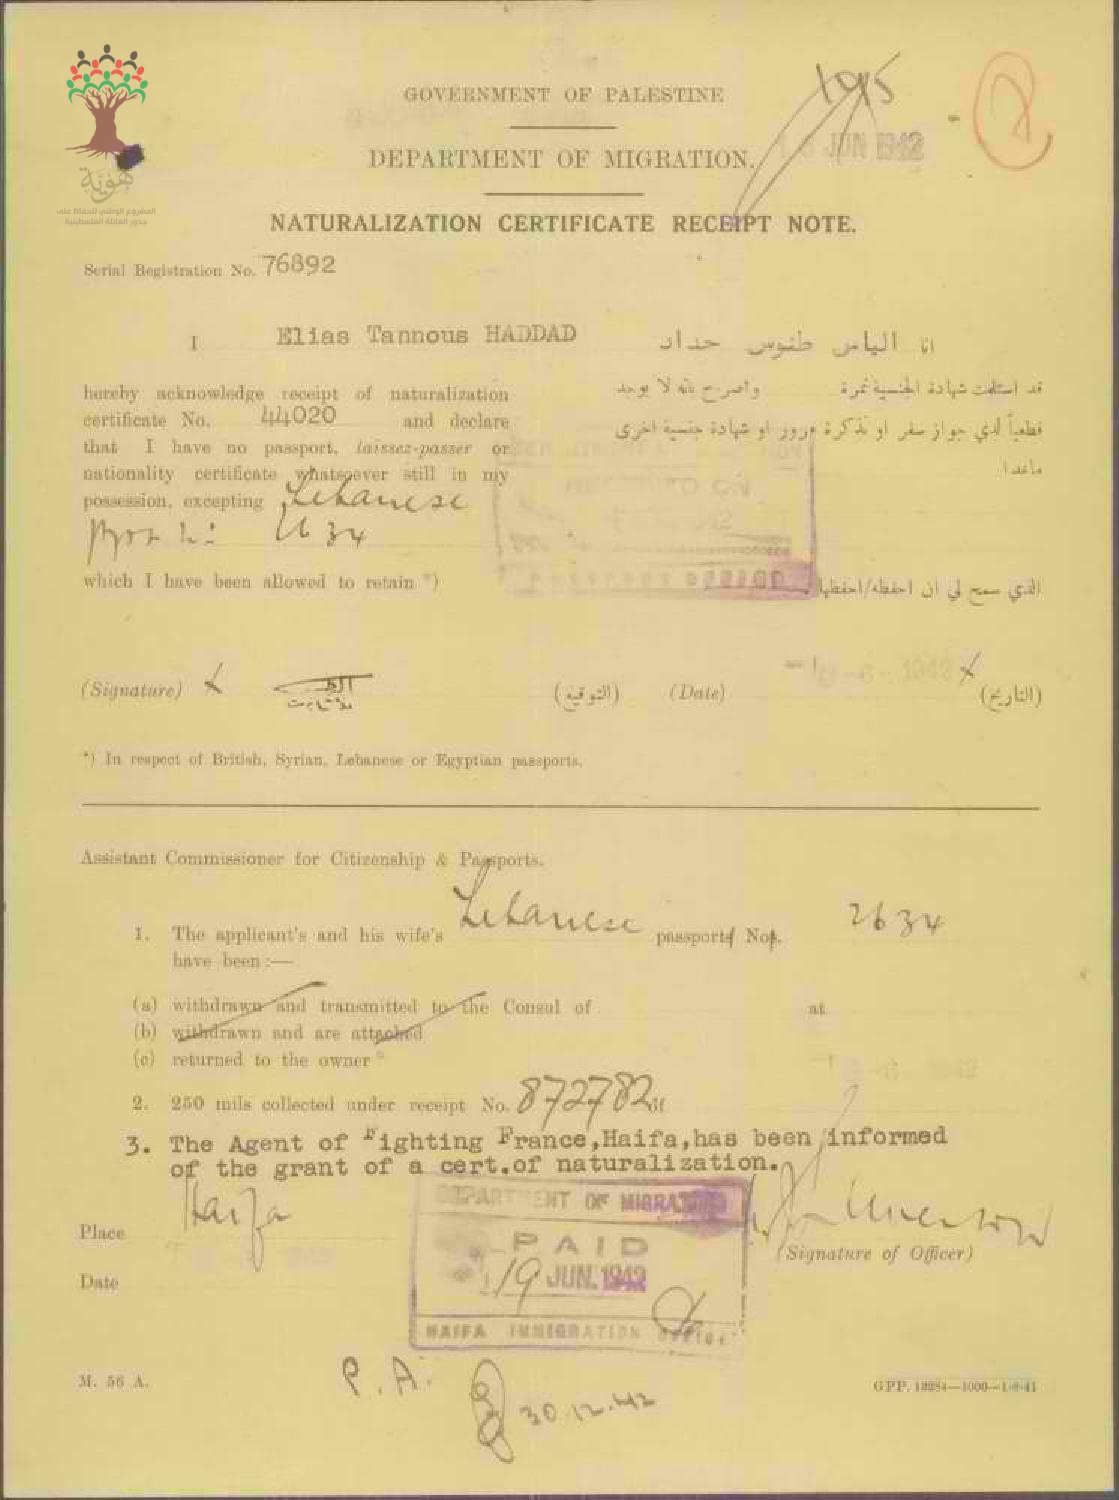 هوية
المشروع الوطني للحفاظ على
جذور العائلة الفلسطينية
GOVERNMENT OF PALESTINE
195
JUN 1942
DEPARTMENT OF MIGRATION.
NATURALIZATION CERTIFICATE RECEIPT NOTE.
Serial Registration No. 76892
I Elias Tannous HADDAD
انا الياس طنوس حداد
hereby acknowledge receipt of naturalization
certificate No. 44020 and declare
that I have no passport, laissez-passer or
nationality certificate whatsoever still in my
possession, excepting Lebanese
2634
which I have been allowed to retain *)
قد استلمت شهادة الجنسية نمرة واصرح بانه لا يوجد
قطعياً لدي جواز سفر او تذكرة مرور او شهادة جنسية اخرى
ماعدا
الذي سمح لي ان احفظه/احفظها
RECEIVED ON
(Signature) (التوقيع) (Date) -6-1942 (التاريخ)
*) In respect of British, Syrian, Lebanese or Egyptian passports.
Assistant Commissioner for Citizenship & Passports.
1. The applicant's and his wife's Lebanese passports Nos. 2634
have been :—
(a) withdrawn and transmitted to the Consul of at
(b) withdrawn and are attached
(c) returned to the owner *
2. 250 mils collected under receipt No. 872782 of
3. The Agent of Fighting France,Haifa,has been informed
of the grant of a cert.of naturalization.
Place Haifa
(Signature of Officer)
Date
DEPARTMENT OF MIGRATION
PAID
19 JUN. 1942
HAIFA IMMIGRATION OFFICE
M. 56 A.
P.A.
30.12.42
GPP. 10284—1000—1-8-41